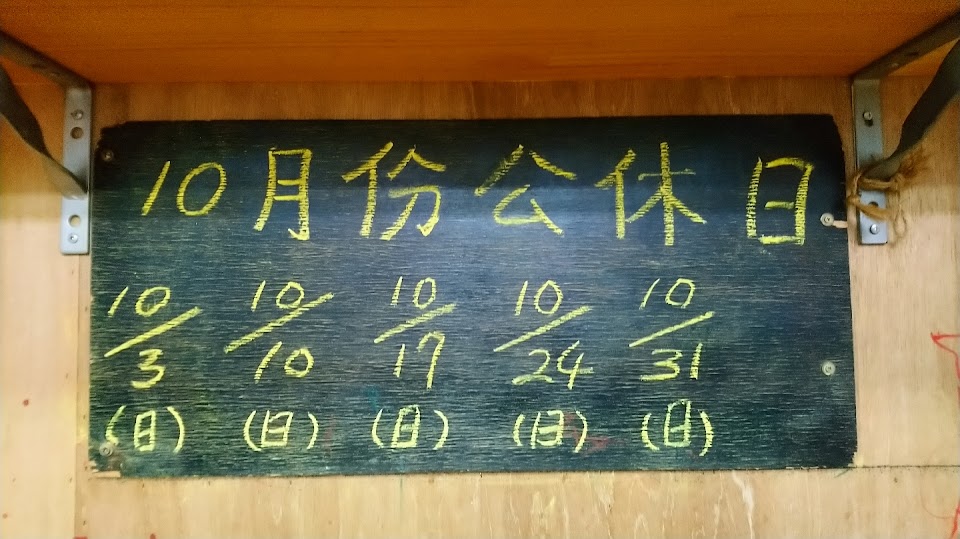 10月份公休日
10/3 10/10 10/17 10/24 10/31
(日) (日) (日) (日) (日)